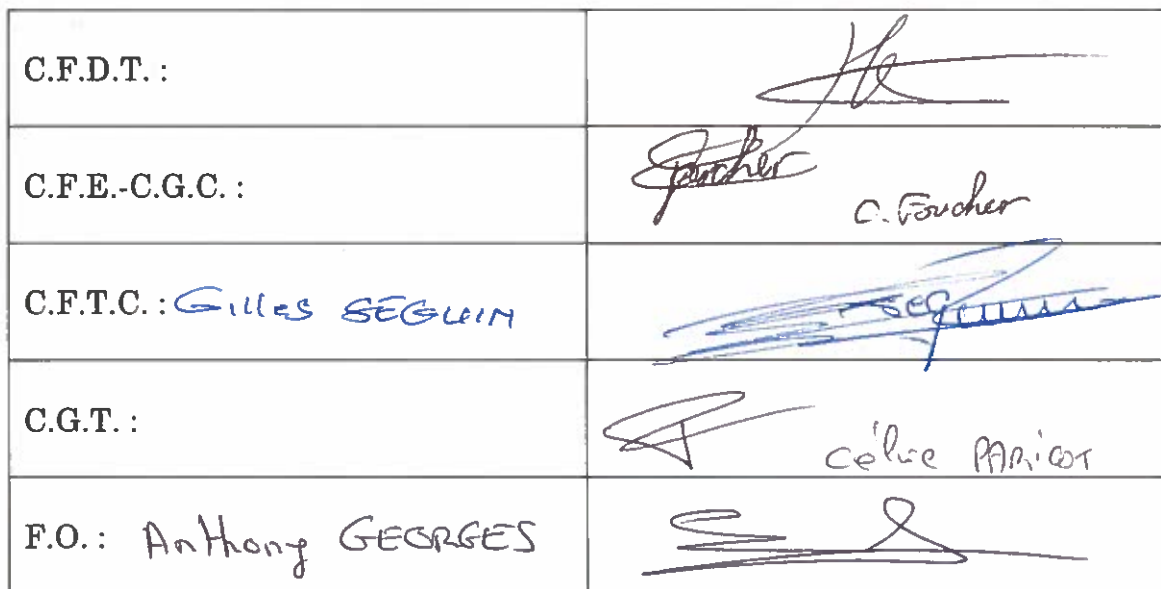 C.F.D.T. :
C.F.E.-C.G.C. :
Foucher
C. Foucher
C.F.T.C. : Gilles SEGUIN
SEGUIN
C.G.T. :
Céline PARICOT
F.O. : Anthony GEORGES